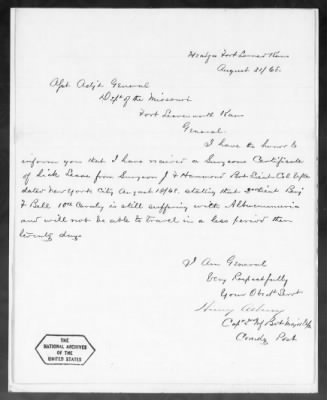 Hdqrs Fort Larned Kans
August 21/68.
Asst Adj't General
Dept of the Missouri
Fort Leavenworth Kans
General.
I have the honor to
inform you that I have received a Surgeons Certificate
of Sick Leave from Surgeon J. F. Hammond Bvt Lieut Col
dated New York City August 18/68. stating that 2nd Lieut
F Bell 10th Cavalry is still suffering with Albuminuria
and will not be able to travel in a less period than
twenty days
I Am General
Very Respectfully
Your Obdt Servt
Henry Asbury
Capt 3rd Inf Bvt Major
Comdg Post
THE
NATIONAL ARCHIVES
OF THE
UNITED STATES